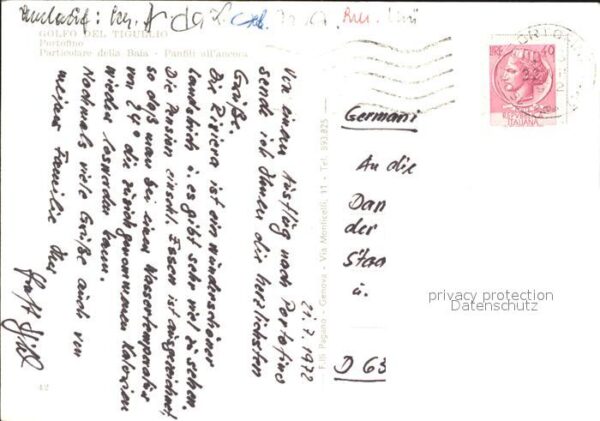 GOLFO DEL TIGULLIO
Portofino
Particolare della Baia - Panfili all'ancora
21.7.1972
Von einem Ausflug nach Portofino
sende ich Ihnen die herzlichsten
Grüße.
Die Riviera ist ein wunderschöner
Landstrich u. es gibt sehr viel zu sehen.
Die Pension einschl. Essen ist ausgezeichnet,
so daß man bei einer Wassertemperatur
von 24° die zugenommenen Kalorien
wieder loswerden kann.
Nochmals viele Grüße auch von
meiner Familie Ihr
F.lli Pagano - Genova - Via Monticelli, 11 - Tel. 393.825
LIRE 40
Germani
An die
Dam
der
Staa
u.
D 63
privacy protection
Datenschutz
42